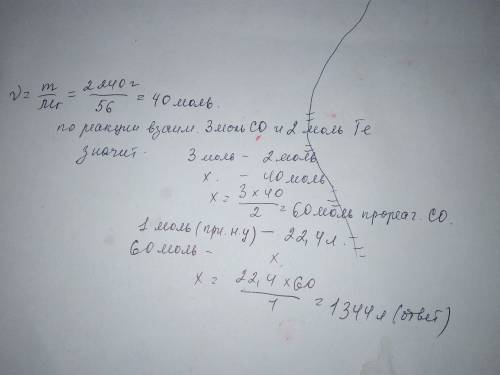 ν = m/Mr = 2240г/56 = 40 моль.
по реакции взаим. 3моль CO и 2 моль Fe
значит.
3 моль - 2моль
x. - 40моль
x = 3×40/2 = 60моль прореаг. CO.
1 моль (при. н.у) — 22,4 л.
60 моль - x.
x = 22,4×60/1 = 1344л (ответ)